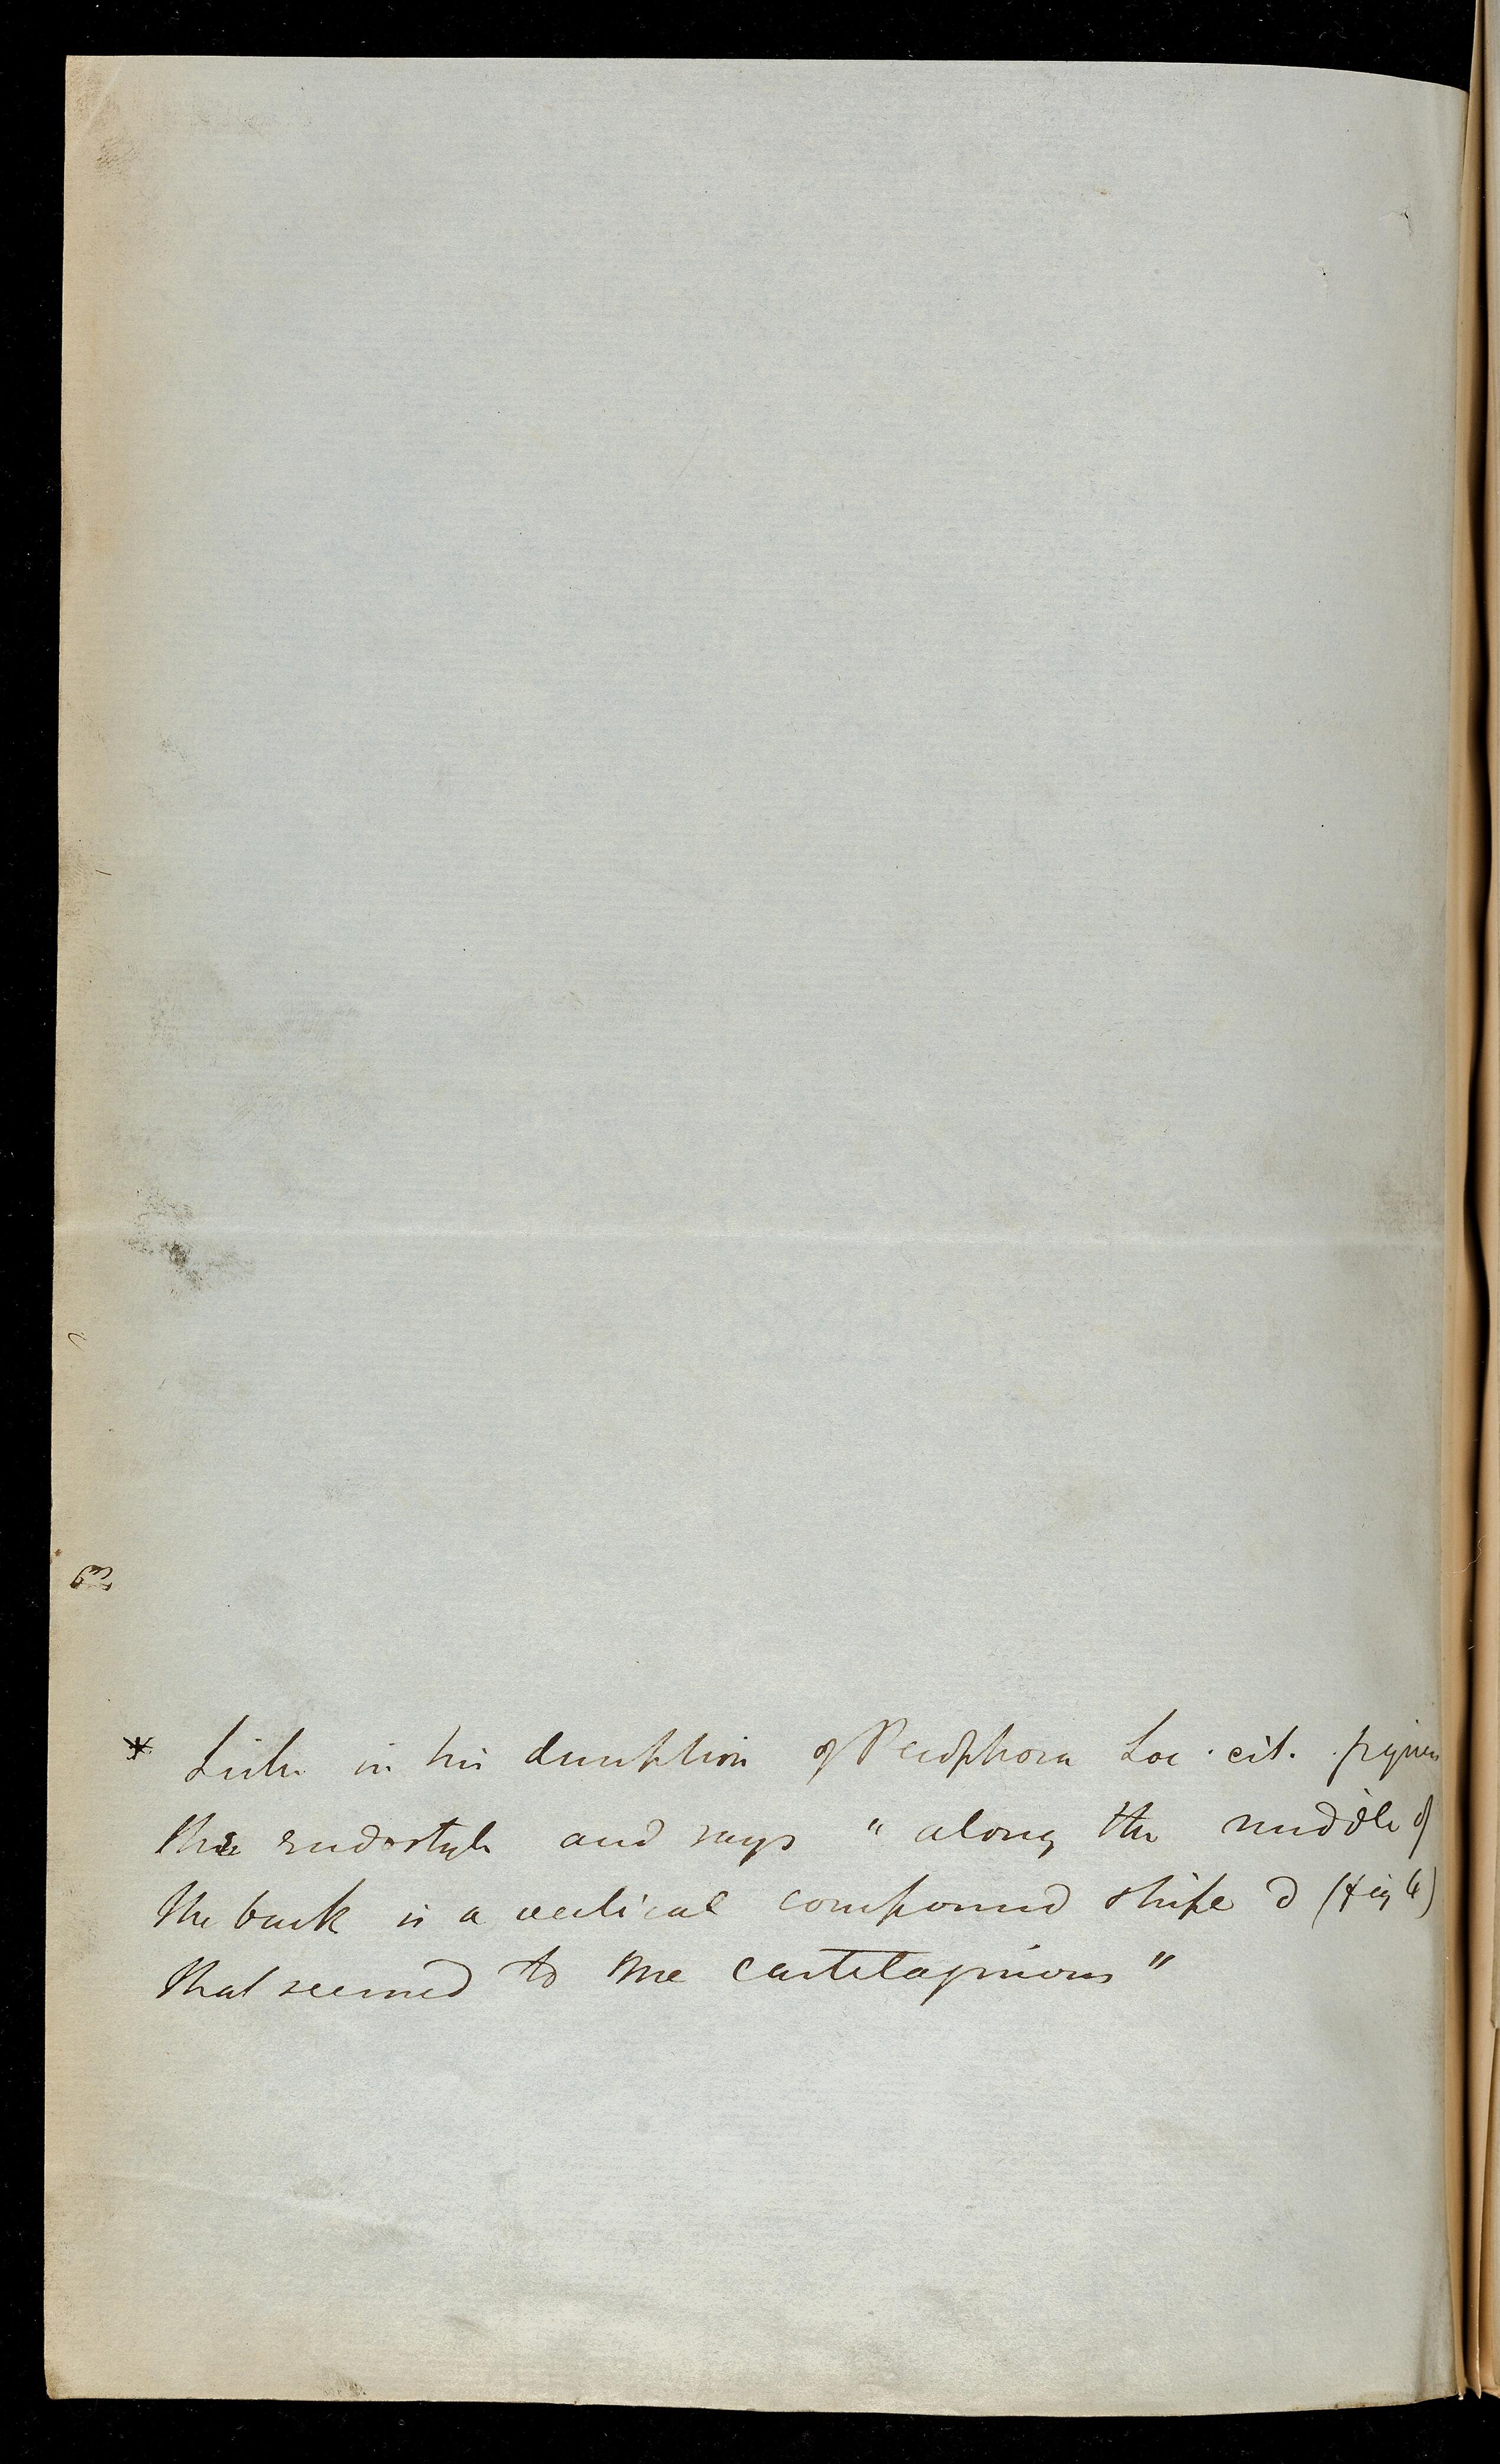 * Lister in his description of Perophora Loc. cit. figures
the endostyle and says " along the middle of
the back is a vertical compound stripe d (fig 6)
that seemed to me cartilaginous "